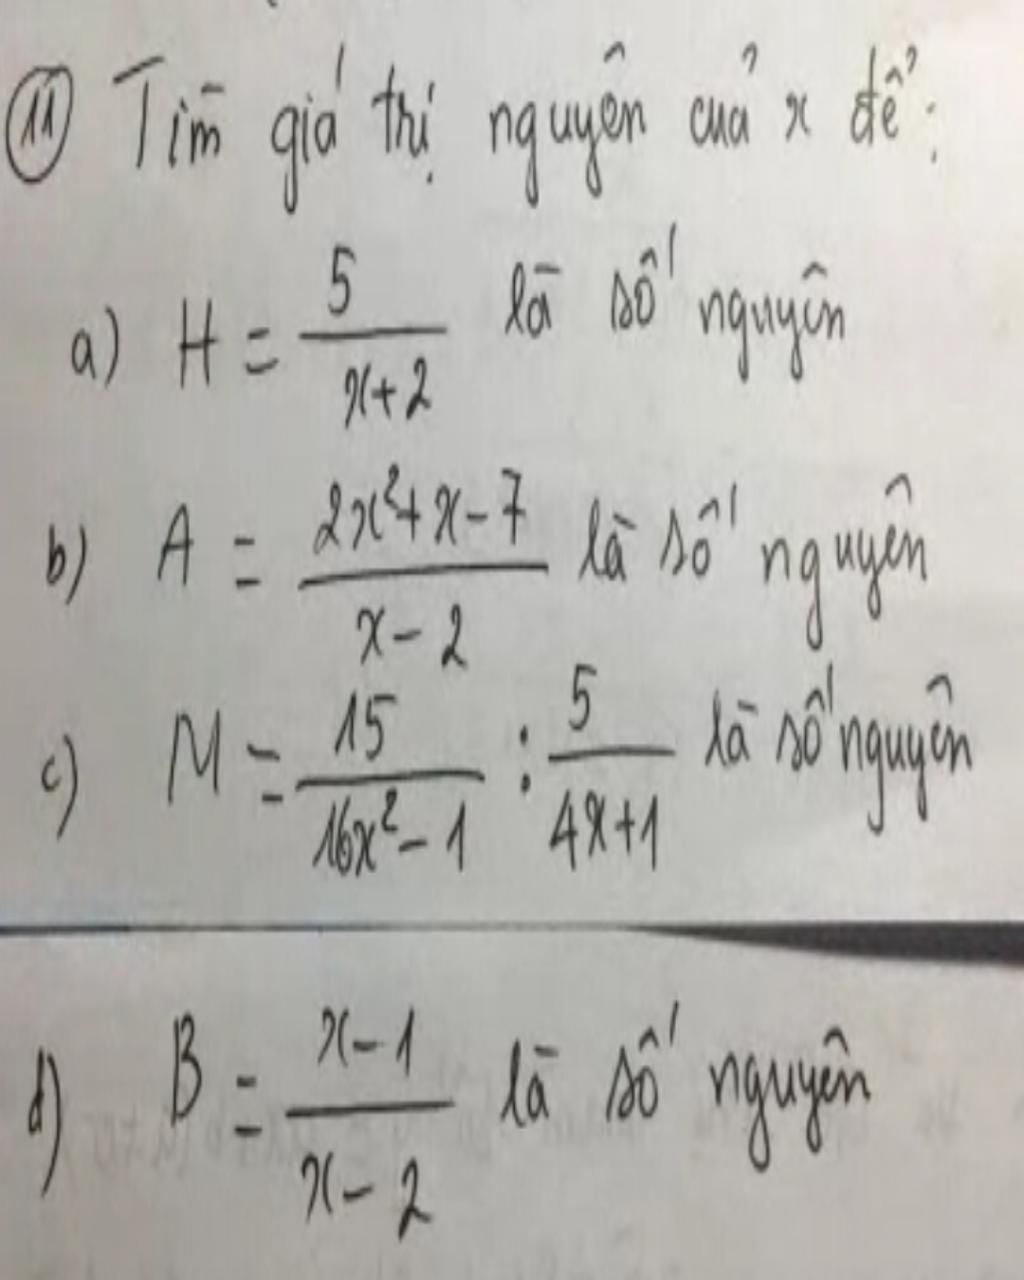 11 Tìm giá thị nguyên của x để:
a) H = 5/(x+2) là số nguyên
b) A = (2x²+x-7)/(x-2) là số nguyên
c) M = 15/(16x²-1) : 5/(4x+1) là số nguyên
d) B = (x-1)/(x-2) là số nguyên